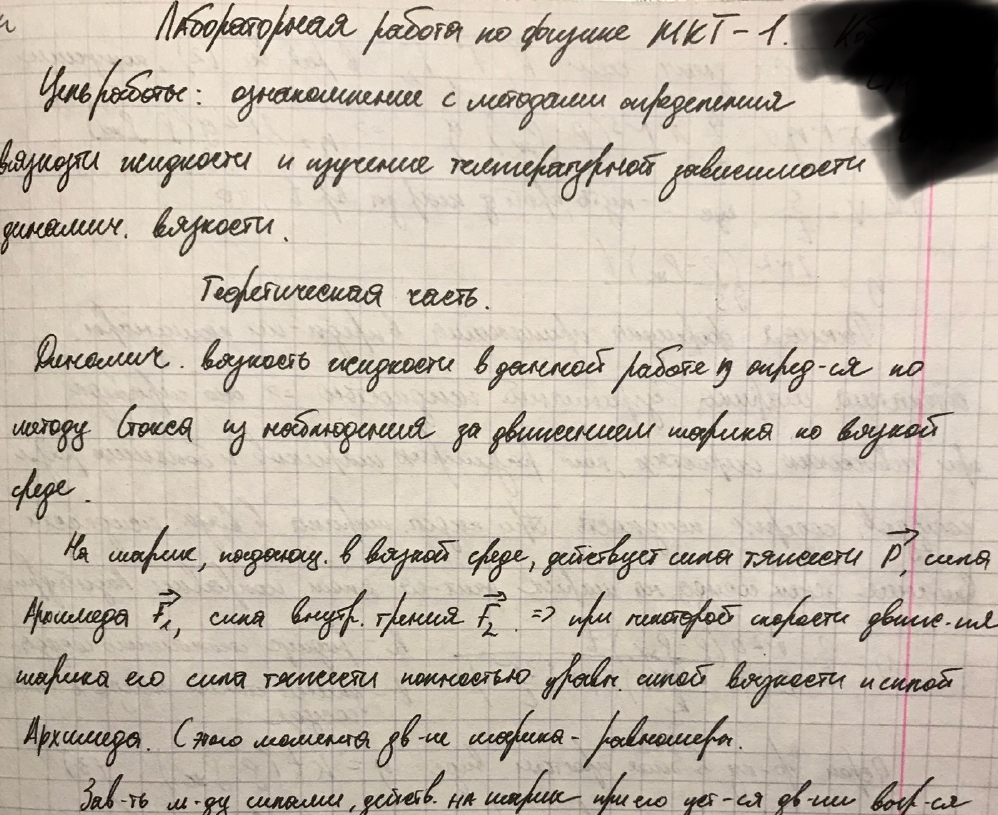 Лабораторная работа по физике МКТ-1.
Цель работы: ознакомление с методами определения
вязкости жидкости и изучение температурной зависимости
динамич. вязкости.
Теоретическая часть.
Динамич. вязкость жидкости в данной работе опред-ся по
методу Стокса из наблюдения за движением шарика по вязкой
среде.
На шарик, падающ. в вязкой среде, действует сила тяжести P, сила
Архимеда F₁, сила внутр. трения F₂ => при некоторой скорости движе-ния
шарика его сила тяжести полностью уравн. силой вязкости и силой
Архимеда. С этого момента дв-ие шарика - равномерн.
Зав-ть м-ду силами, действ. на шарик при его уст-ся дв-ии выр-ся